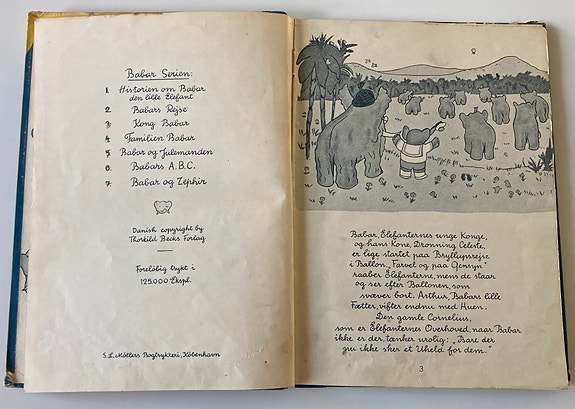 Babar Serien:
1. Historien om Babar
den lille Elefant
2. Babars Rejse
3. Kong Babar
4. Familien Babar
5. Babar og Julemanden
6. Babars A.B.C.
7. Babar og Zephir
Danish copyright by
Thorkild Becks Forlag
Foreløbig trykt i
125.000 Ekspl.
S. L. Møllers Bogtrykkeri, København
Babar, Elefanternes unge Konge,
og hans Kone, Dronning Celeste,
er lige startet paa Bryllupsrejse
i Ballon. „Farvel og paa Gensyn"
raaber Elefanterne, mens de staar
og ser efter Ballonen, som
svæver bort. Arthur, Babars lille
Fætter, vifter endnu med Huen.
Den gamle Cornelius,
som er Elefanternes Overhoved, naar Babar
ikke er der, tænker urolig: „Bare der
nu ikke sker et Uheld for dem."
3